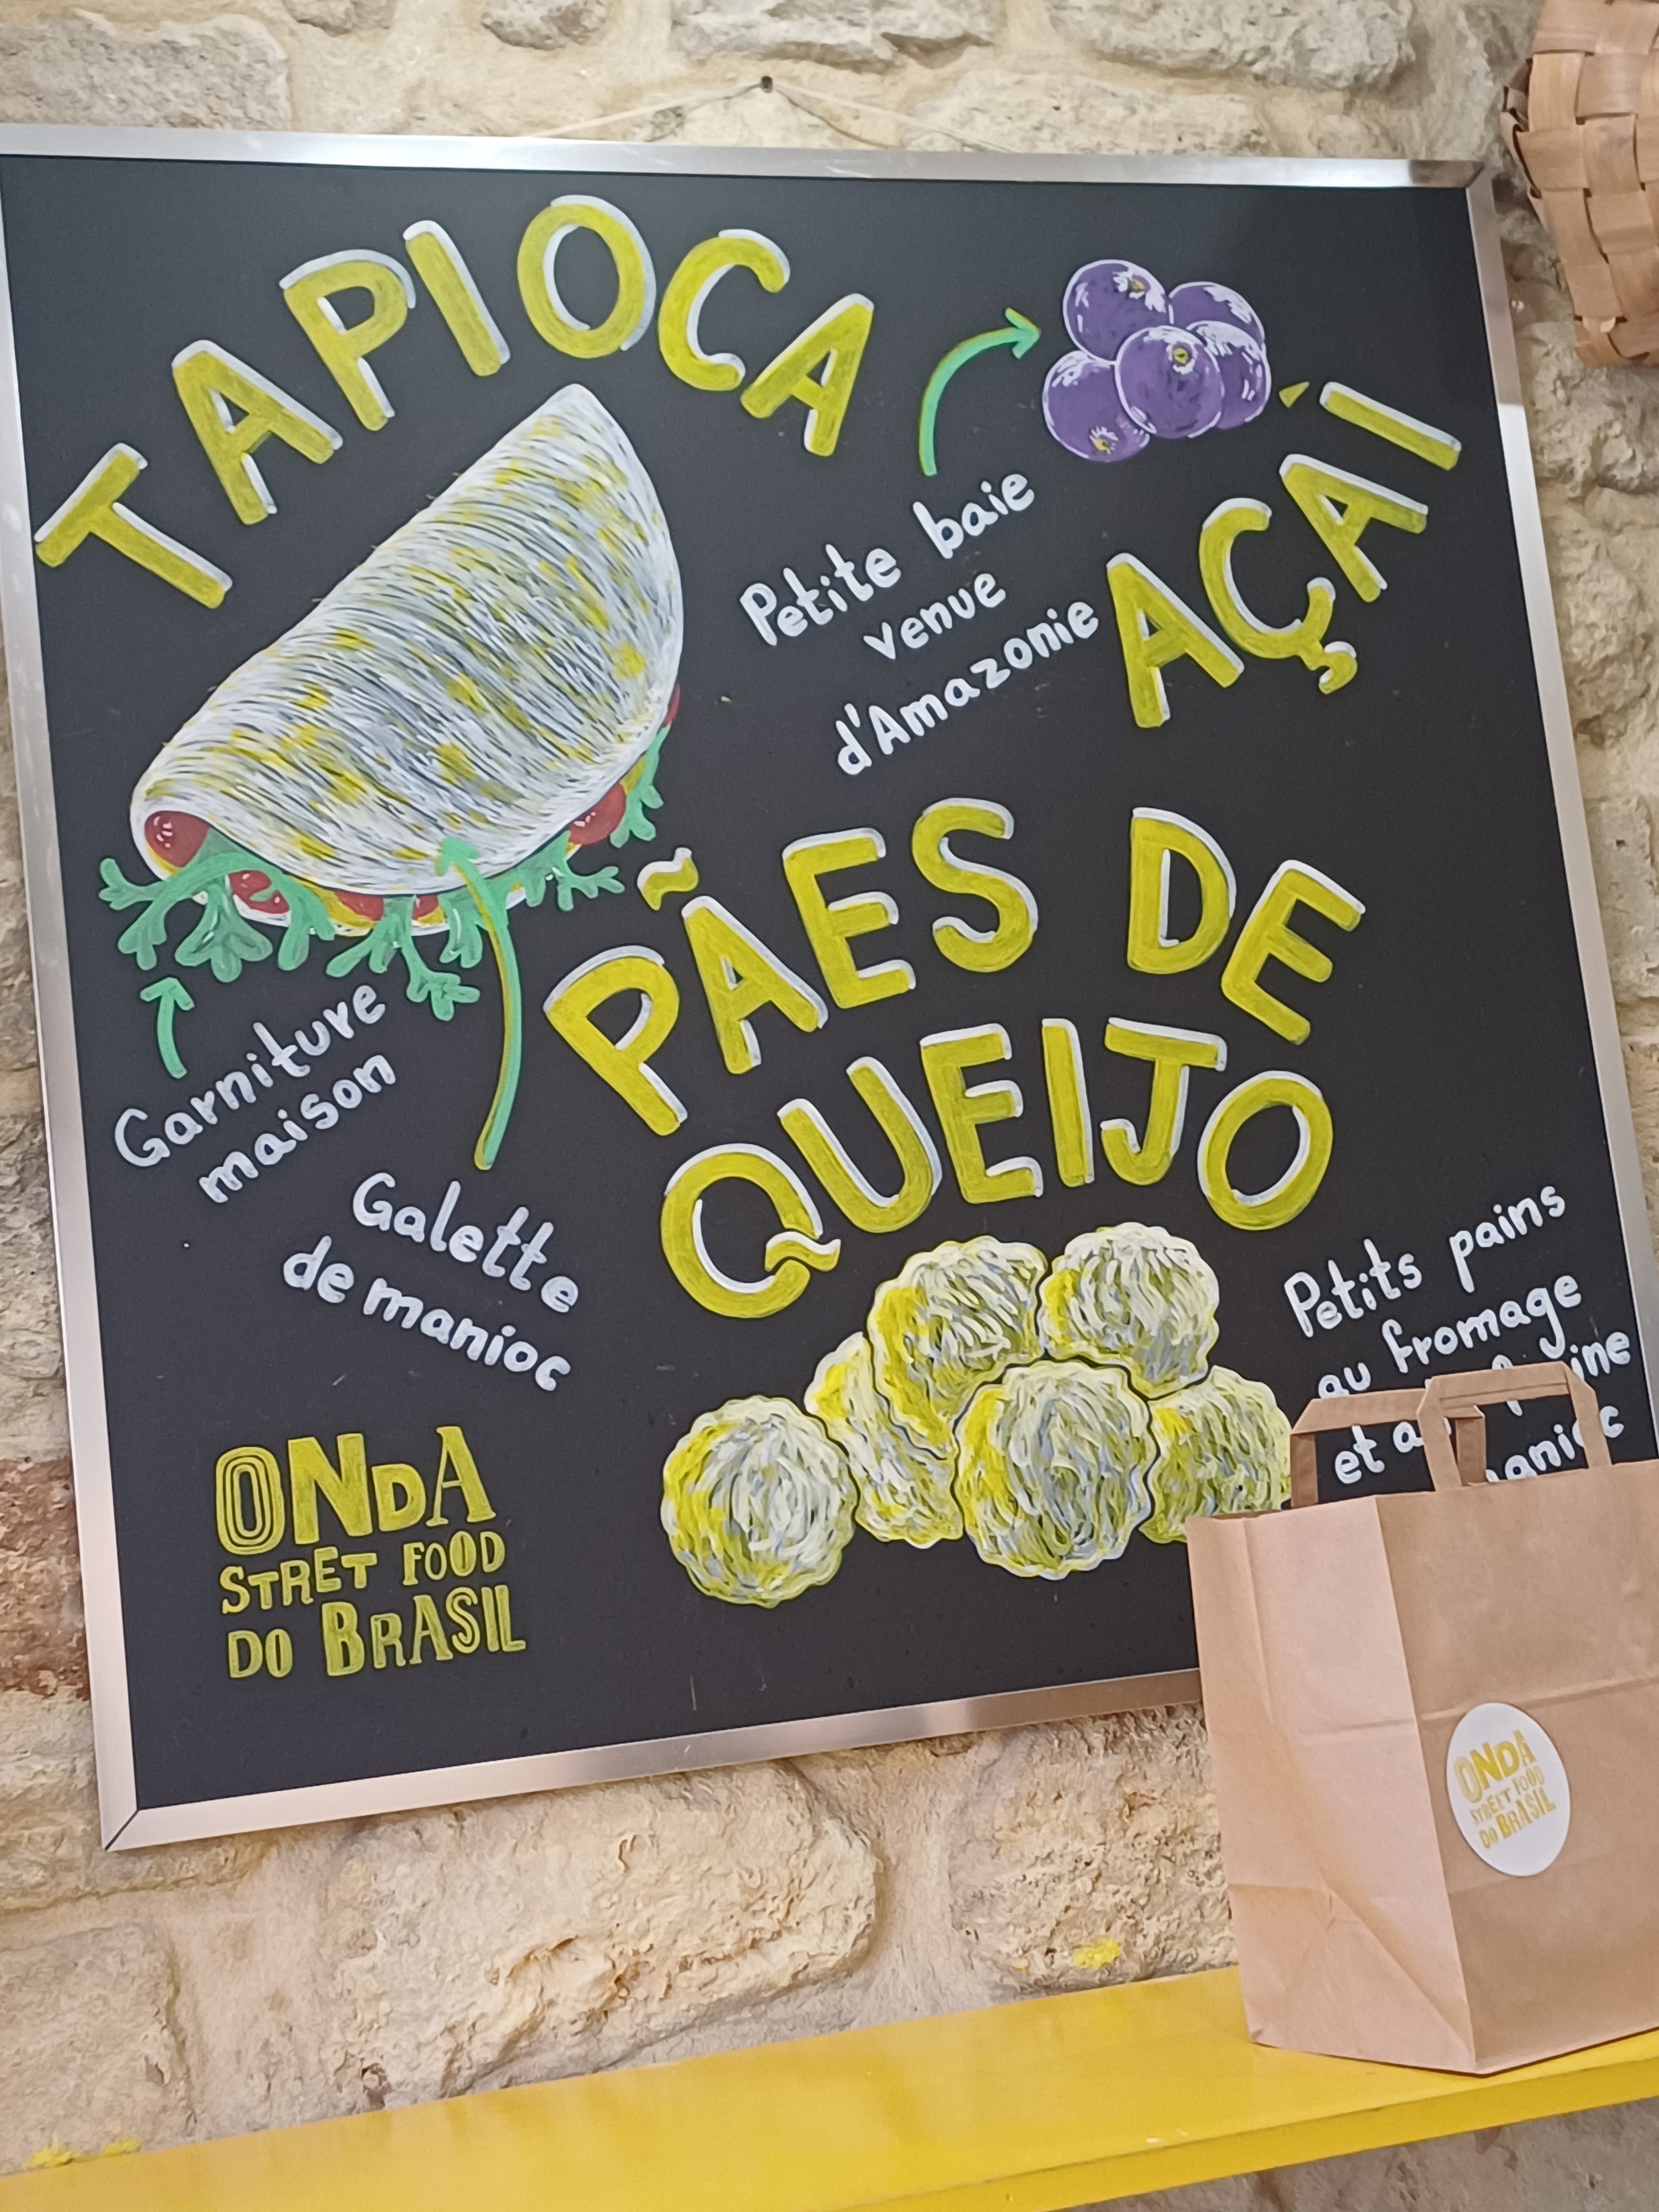 TAPIOCA
Petite baie
venue
d'Amazonie
AÇAÍ
PÃES DE
QUEIJO
Garniture
maison
Galette
de manioc
Petits pains
au fromage
et
ONDA
STRET FOOD
DO BRASIL
ONDA
STREET FOOD
DO BRASIL